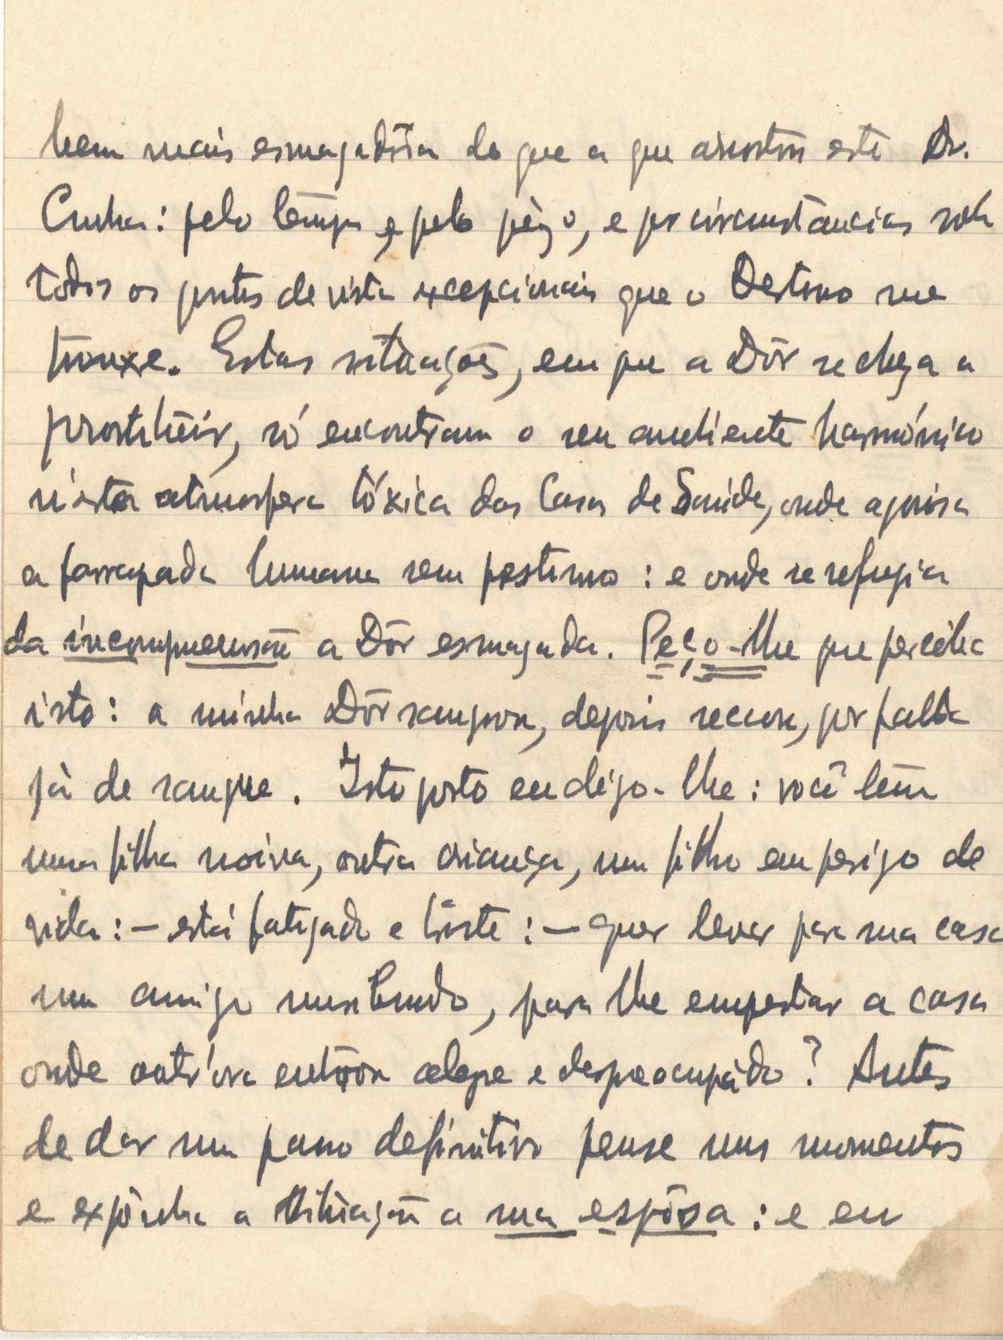 bem mais esmagadôra do que a que arrostou este Dr.
Cunha: pelo têmpo, e pelo pêzo, e por circumstâncias sob
todos os pontos de vista excepcionais que o Destino me
trouxe. Estas situações, em que a Dôr se chega a
prostituir, só encontram o seu ambiente harmónico
n'esta atmosfera tóxica das Casas de Saúde, onde agonisa
a farrapada humana sem prestimo: e onde se refugia
da incompreensão a Dôr esmagada. Peço-lhe que percêba
isto: a minha Dôr sangrou, depois seccou, por falta
já de sangue. Isto posto eu digo-lhe: você têm
uma filha noiva, outra criança, um filho em perigo de
vida: — está fatigado e triste: — quer levar para sua casa
um amigo moribundo, para lhe empestar a casa
onde outr'ora entrou alegre e despreocupado? Antes
de dar um passo definitivo pense uns momentos
e expônha a situação a sua espôsa: e eu